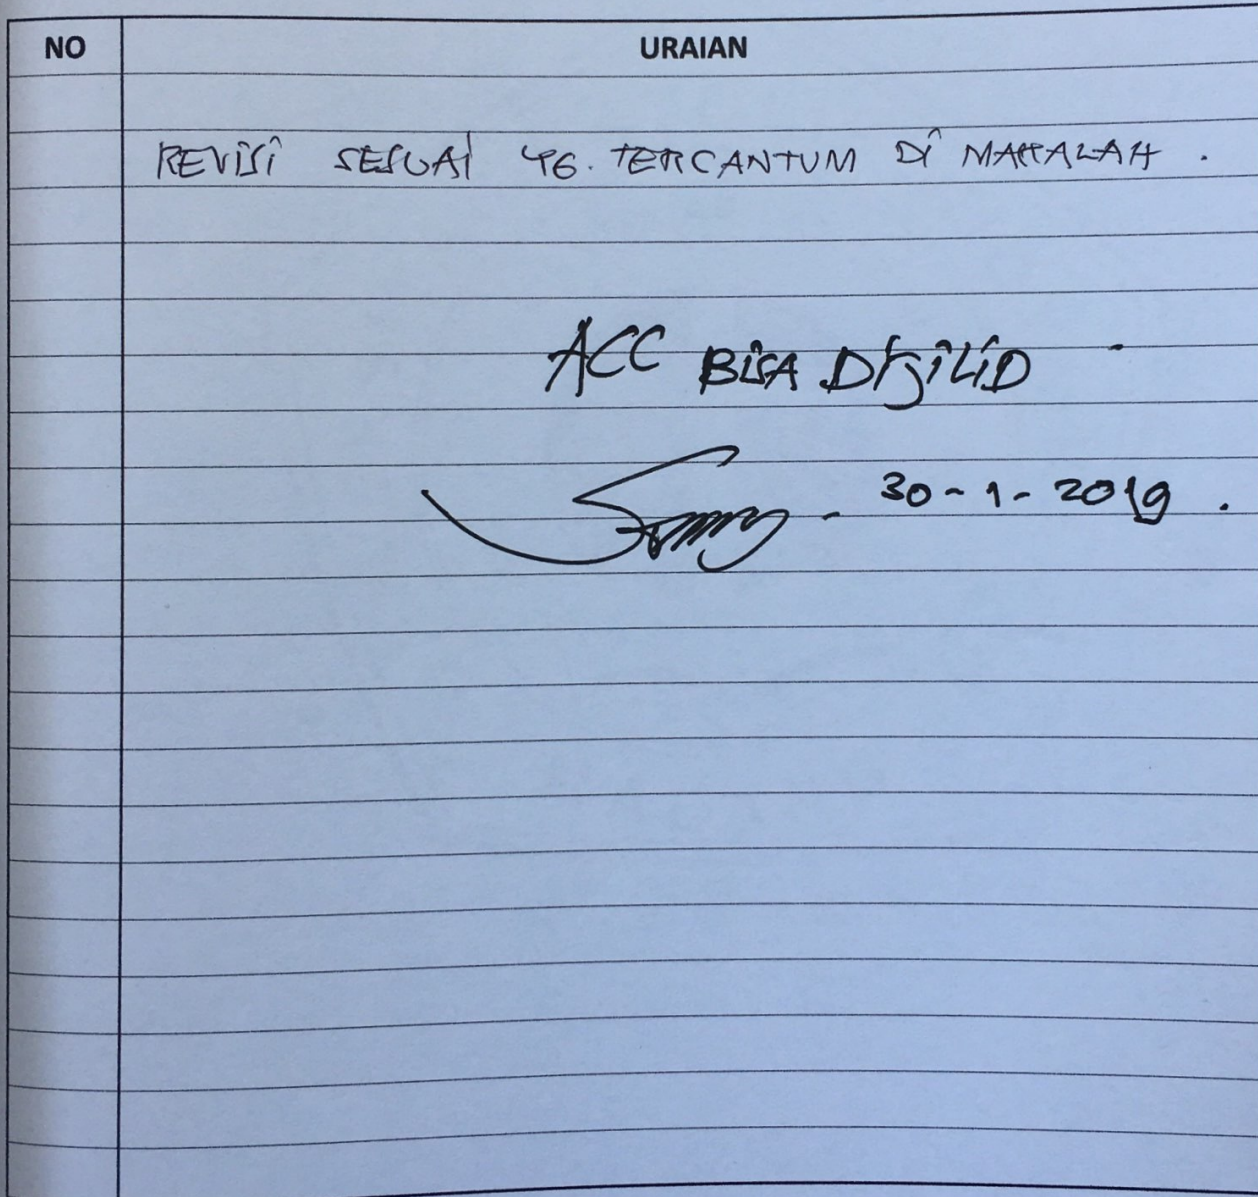 NO URAIAN
REVISI SESUAI YG. TERCANTUM DI MAKALAH .
ACC BISA DIJILID
30-1-2019.